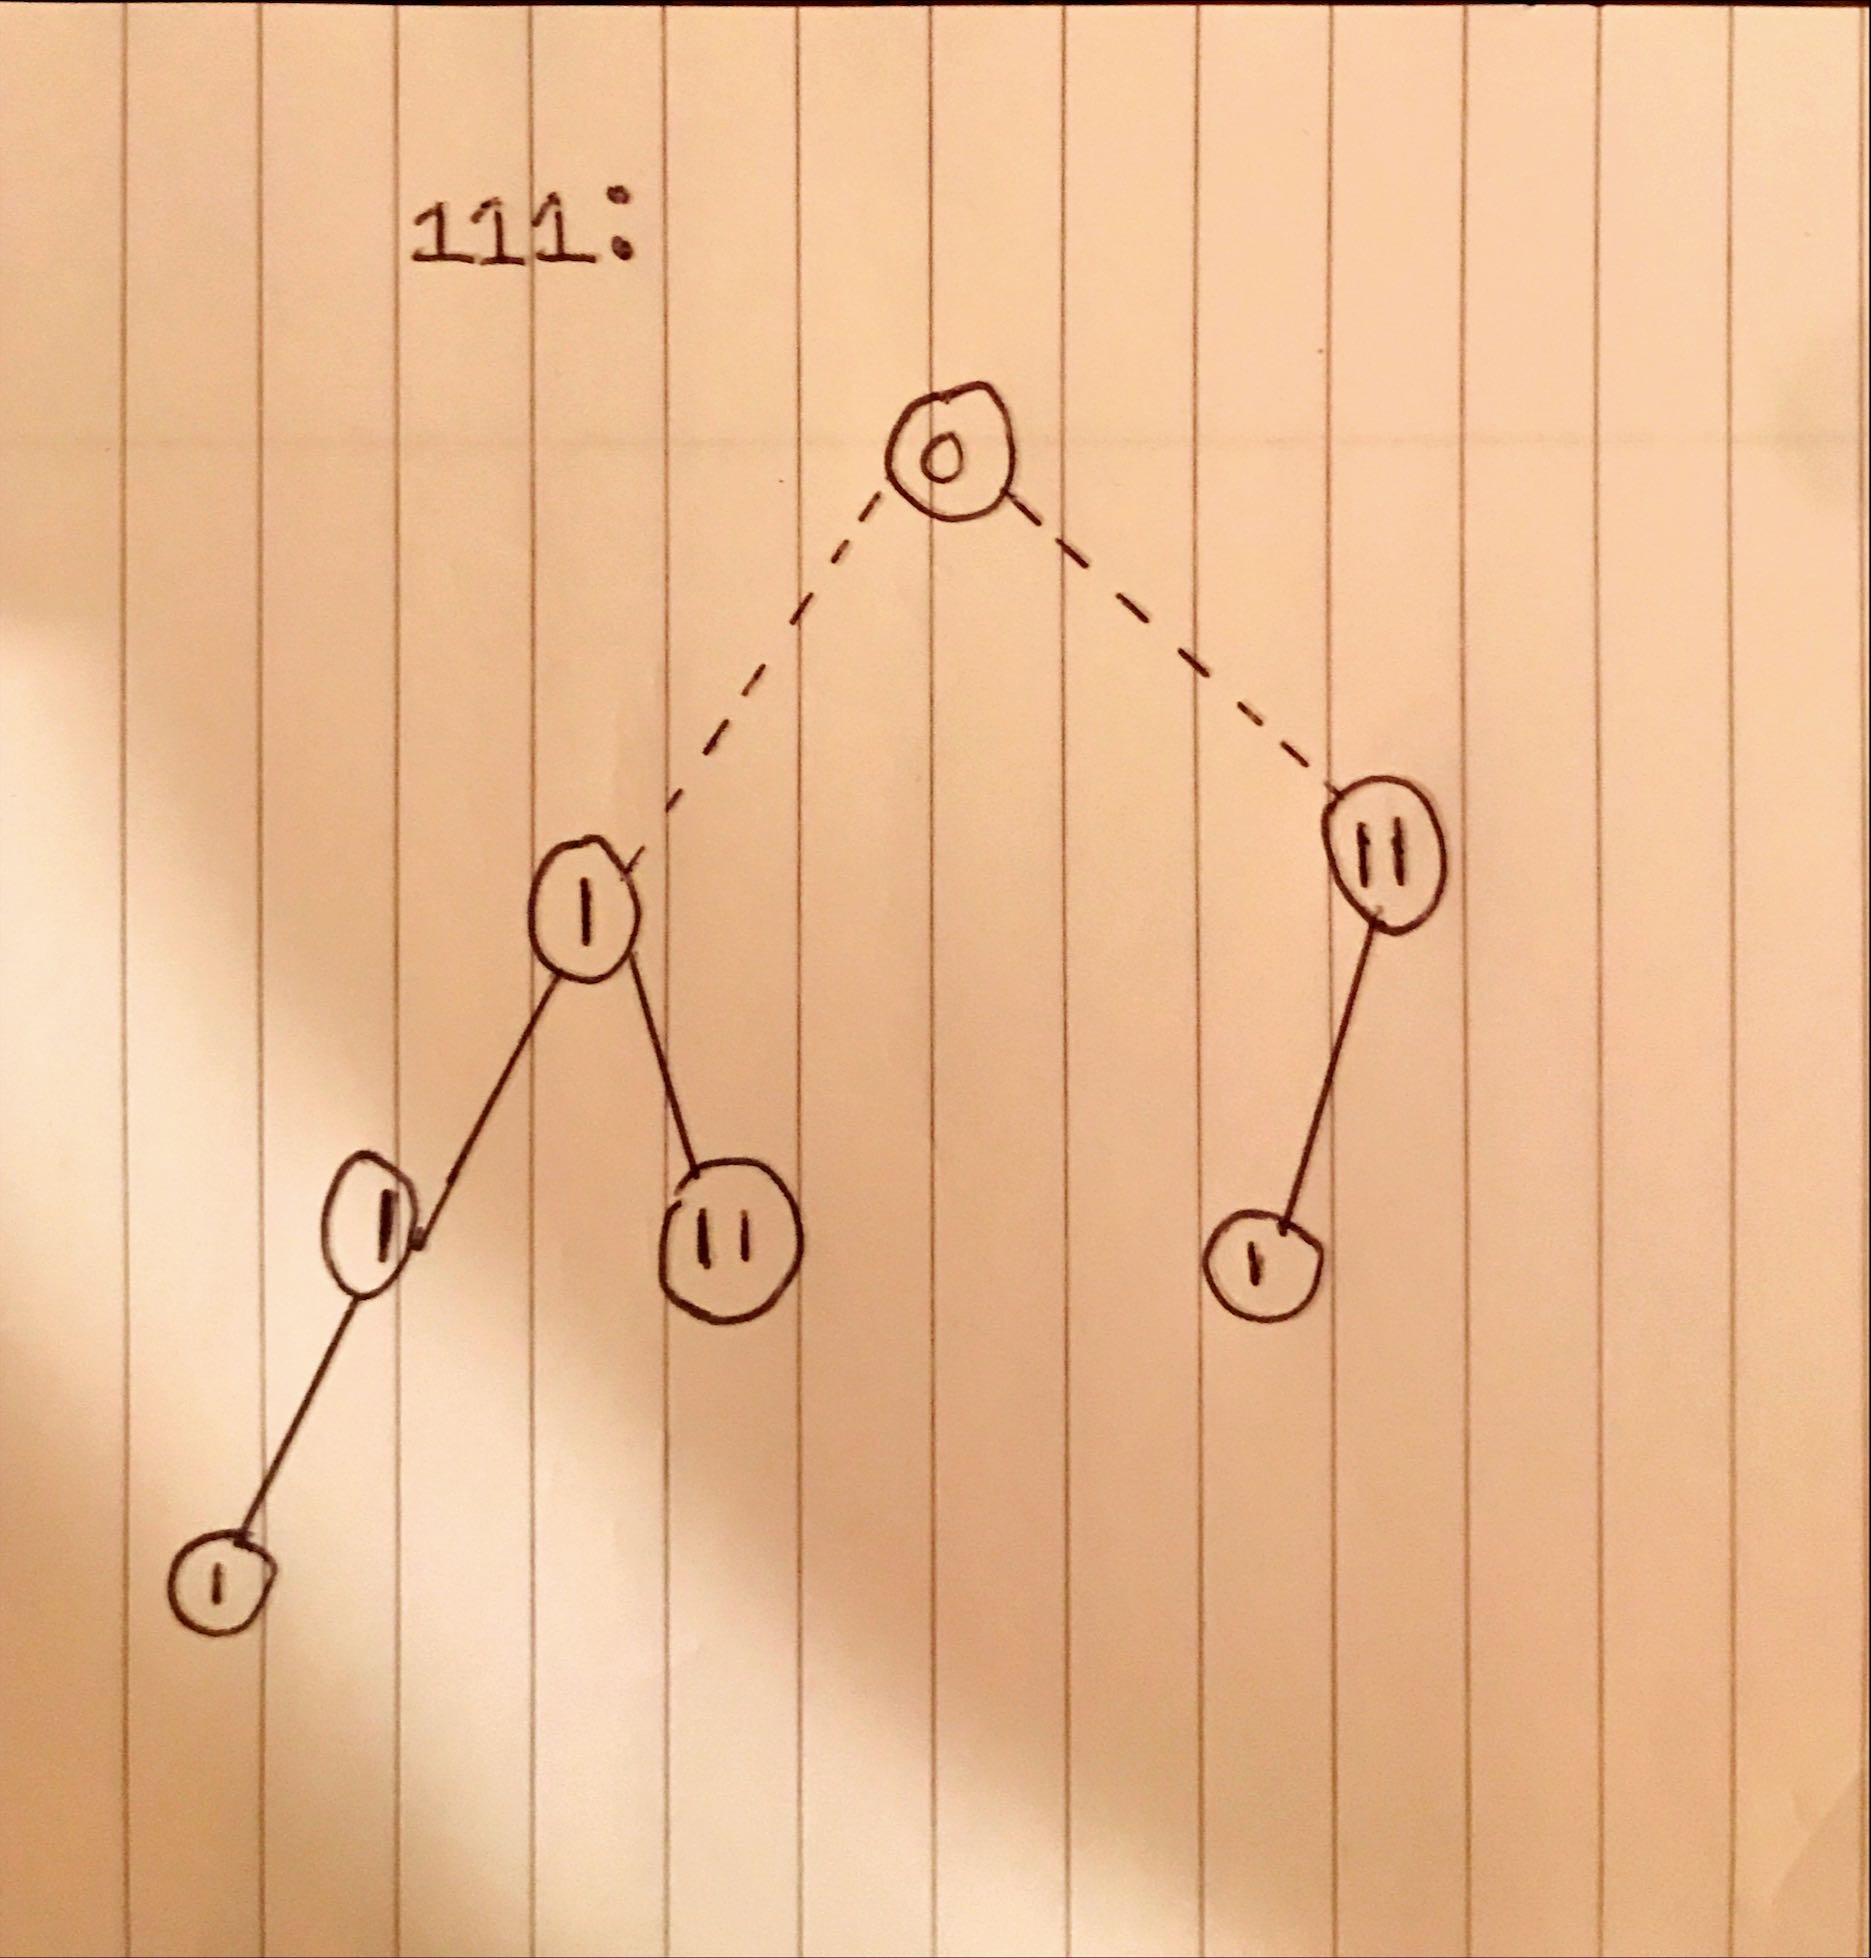 111:
0
1
11
1
11
1
1